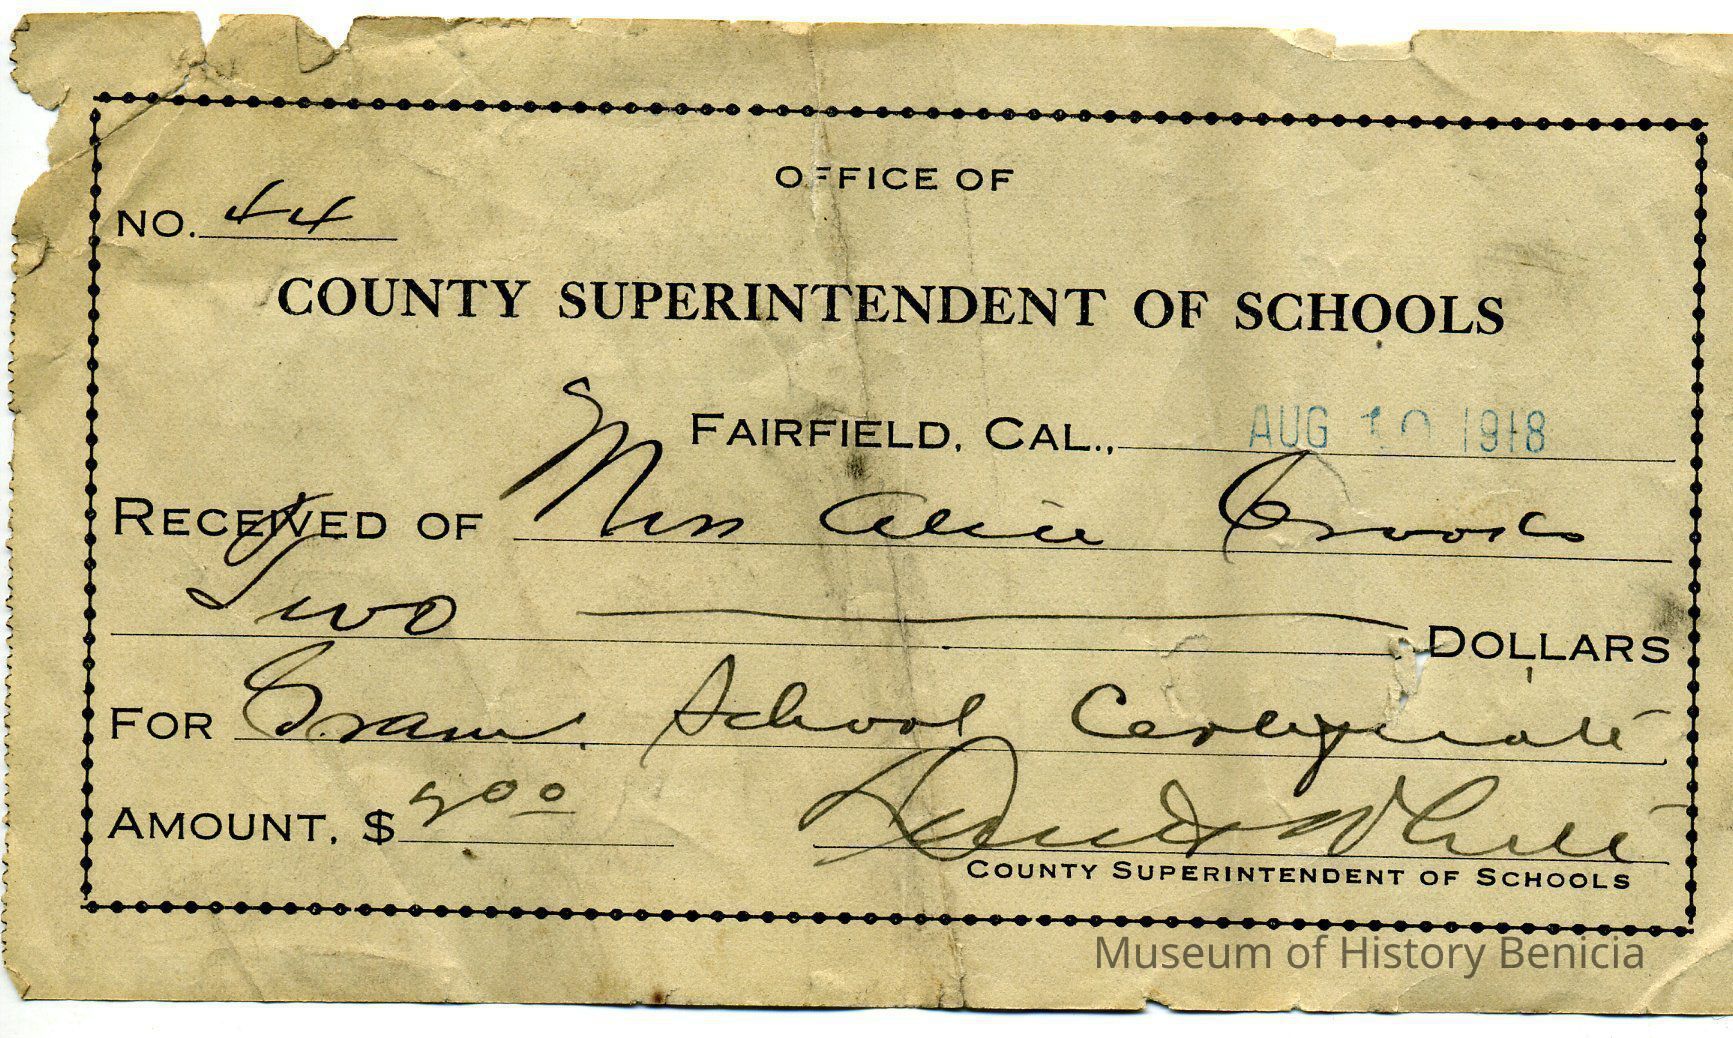 OFFICE OF
NO. 44
COUNTY SUPERINTENDENT OF SCHOOLS
FAIRFIELD, CAL., AUG 10 1918
RECEIVED OF Miss Alice Crooks
Two DOLLARS
FOR Gram. School Certificate
AMOUNT, $ 200
Dan H White
COUNTY SUPERINTENDENT OF SCHOOLS
Museum of History Benicia